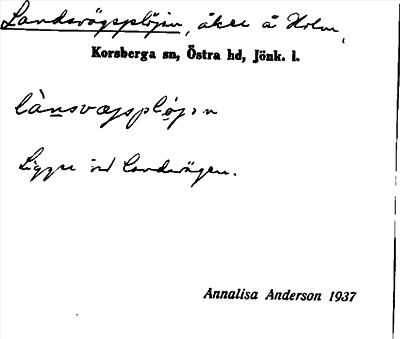 Landsvägsplöjan, åker å Holm,
Korsberga sn, Östra hd, Jönk. l.
lànsvægsplöjən
Ligger vid landsvägen.
Annalisa Anderson 1937